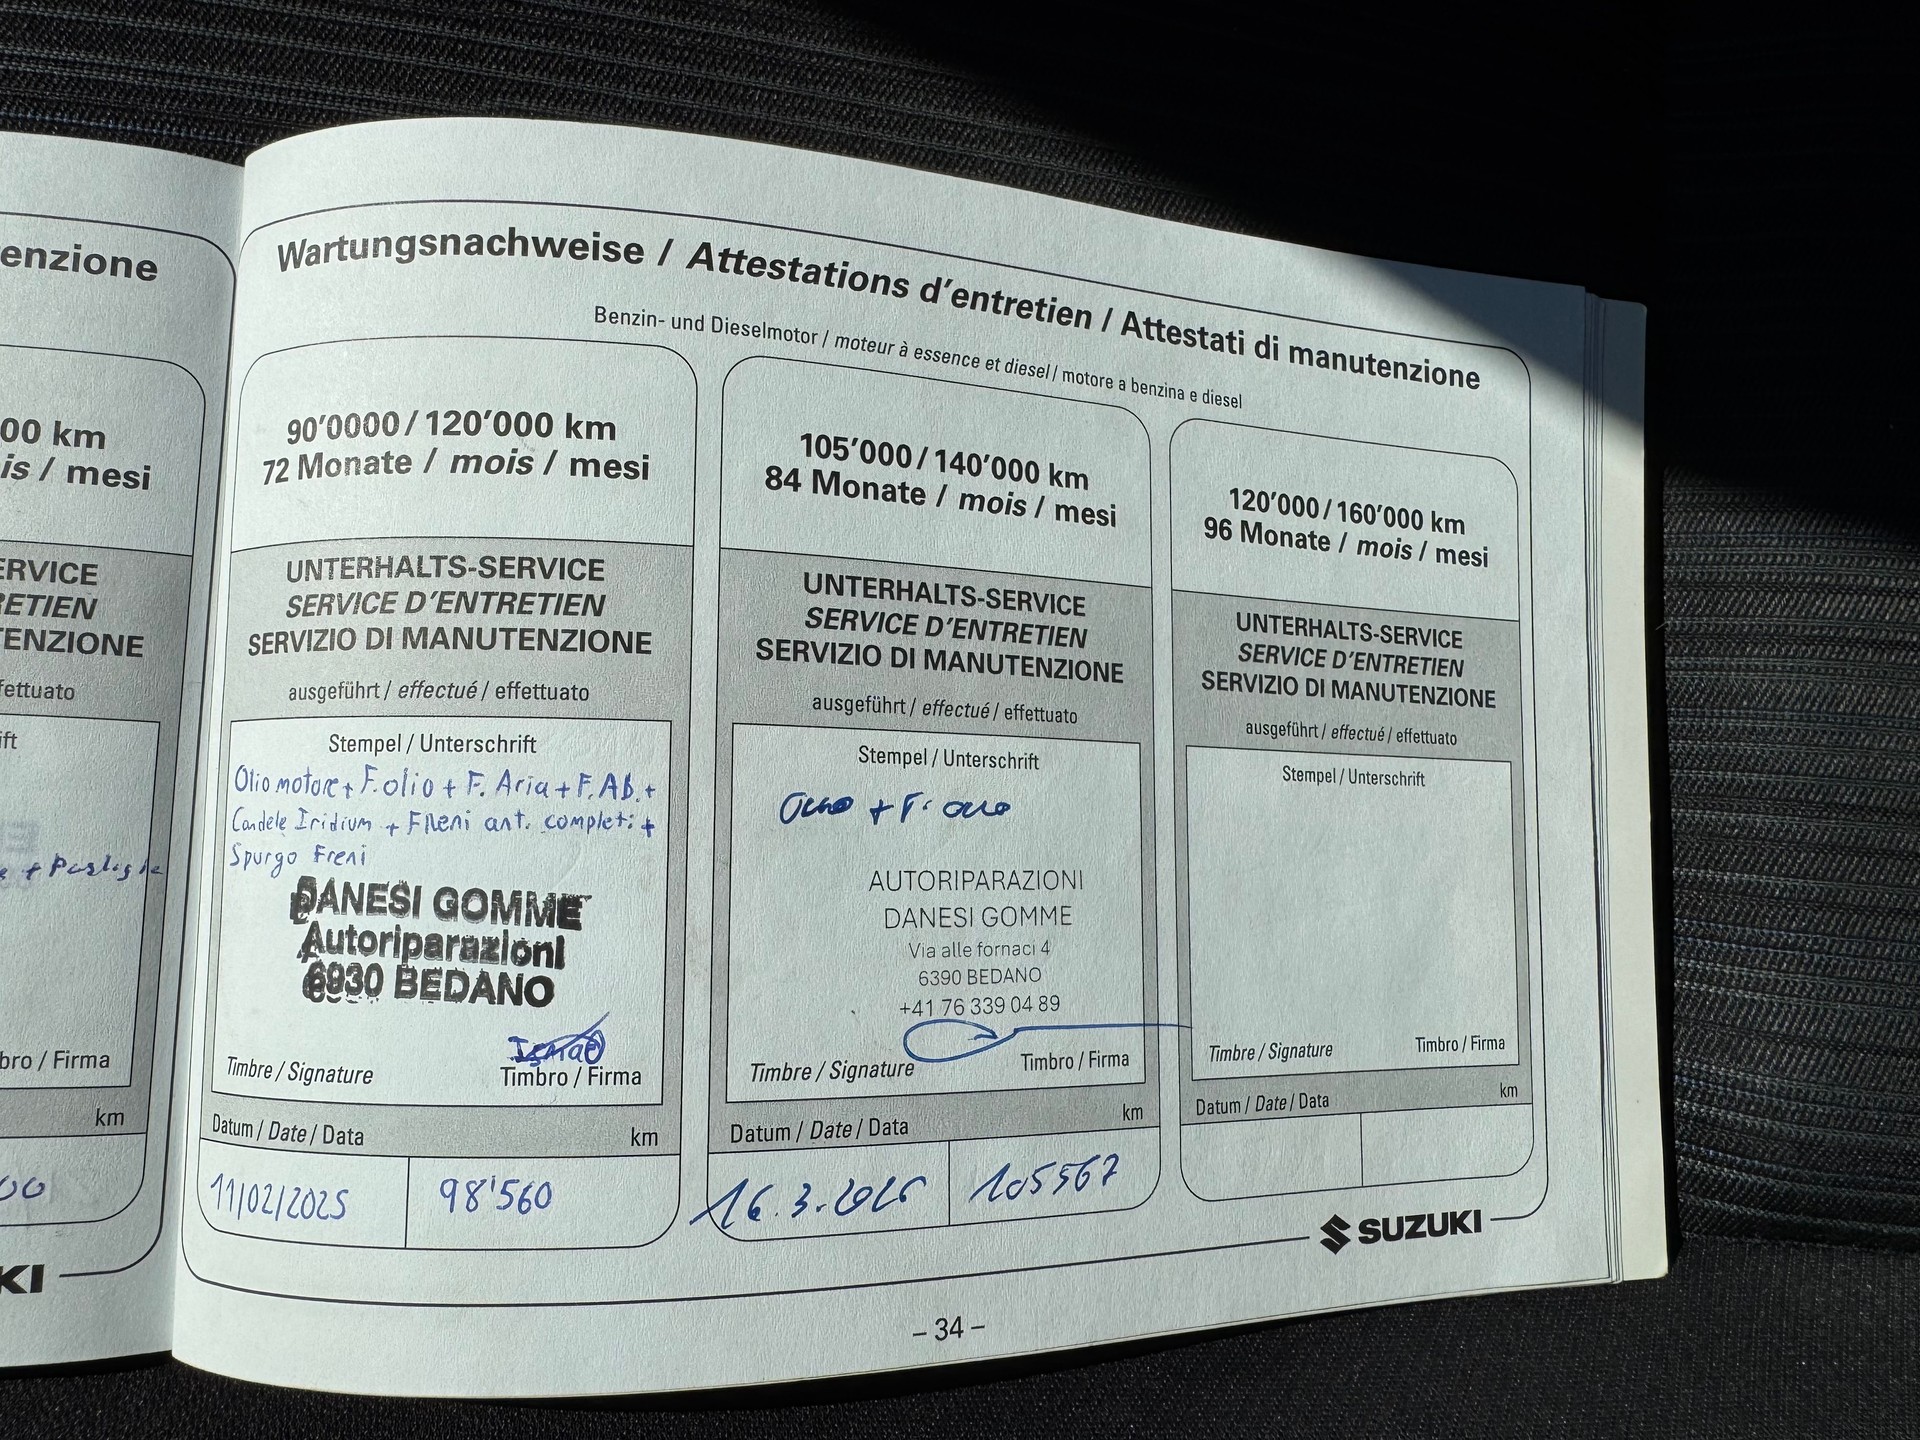 enzione
00 km
is / mesi
ERVICE
RETIEN
TENZIONE
fettuato
ift
+ Pastiglie
bro / Firma
km
00
KI
Wartungsnachweise / Attestations d'entretien / Attestati di manutenzione
Benzin- und Dieselmotor / moteur à essence et diesel / motore a benzina e diesel
90'0000 / 120'000 km
72 Monate / mois / mesi
UNTERHALTS-SERVICE
SERVICE D'ENTRETIEN
SERVIZIO DI MANUTENZIONE
ausgeführt / effectué / effettuato
Stempel / Unterschrift
Olio motore + F. olio + F. Aria + F. Ab. +
Candele Iridium + Freni ant. completi +
Spurgo Freni
DANESI GOMME
Autoriparazioni
6930 BEDANO
Timbre / Signature
Timbro / Firma
Datum / Date / Data km
11/02/2025 98'560
105'000 / 140'000 km
84 Monate / mois / mesi
UNTERHALTS-SERVICE
SERVICE D'ENTRETIEN
SERVIZIO DI MANUTENZIONE
ausgeführt / effectué / effettuato
Stempel / Unterschrift
Olio + F. olio
AUTORIPARAZIONI
DANESI GOMME
Via alle fornaci 4
6390 BEDANO
+41 76 339 04 89
Timbre / Signature
Timbro / Firma
Datum / Date / Data km
16.3.2026 105567
120'000 / 160'000 km
96 Monate / mois / mesi
UNTERHALTS-SERVICE
SERVICE D'ENTRETIEN
SERVIZIO DI MANUTENZIONE
ausgeführt / effectué / effettuato
Stempel / Unterschrift
Timbre / Signature
Timbro / Firma
Datum / Date / Data km
SUZUKI
– 34 –